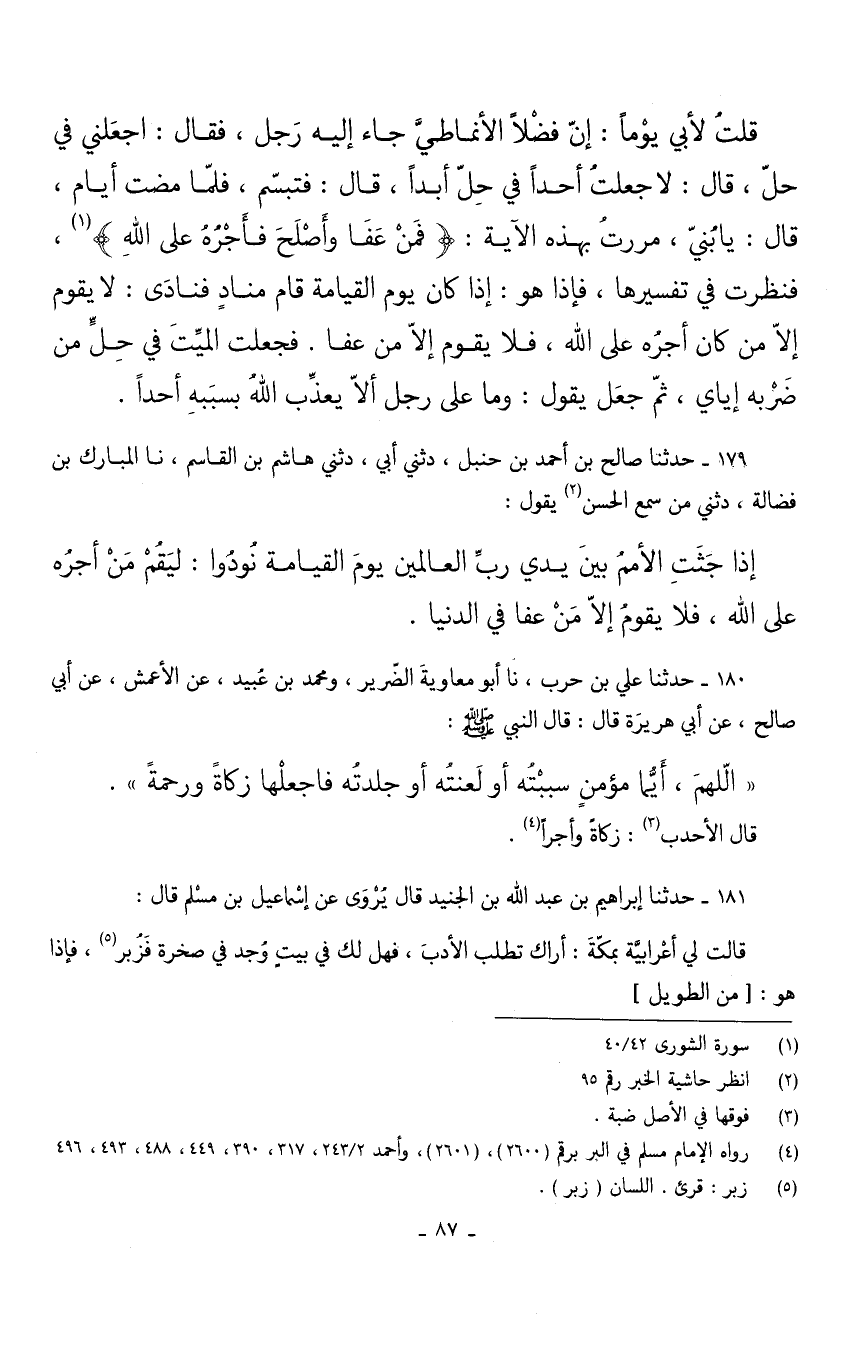 قلتُ لأبي يوْماً : إنّ فضْلاً الأنمـاطيَّ جـاء إليـه رَجل ، فقـال : اجعَلني في
حلّ ، قال : لا جعلتُ أحـداً في حِلّ أبـداً ، قـال : فتبسّم ، فلمّـا مضت أيـام ،
قال : يابُنيّ ، مررتُ بهـذه الآيـة : ﴿ فَمَنْ عَفَـا وأَصْلَحَ فـأَجْرُهُ على اللهِ ﴾(١) ،
فنظرت في تفسيرها ، فإذا هو : إذا كان يوم القيامة قام منـادٍ فنـادَى : لا يقوم
إلاّ من كان أجرُه على الله ، فـلا يقـوم إلاّ من عفـا . فجعلت الميِّتَ في حِـلٍّ من
ضَرْبه إياي ، ثمّ جعَل يقول : وما على رجل ألاّ يعذِّب اللهُ بسبَبهِ أحداً .
١٧٩ ـ حدثنا صالح بن أحمد بن حنبل ، دثني أبي ، دثني هـاشم بن القـاسم ، نـا المبـارك بن
فضالة ، دثني من سمع الحسن(٢) يقول :
إذا جَثَتِ الأممُ بينَ يـدي ربِّ العـالمين يومَ القيـامـة نُودُوا : ليَقُمْ مَنْ أجرُه
على الله ، فلا يقومُ إلاّ مَنْ عفا في الدنيا .
١٨٠ ـ حدثنا علي بن حرب ، نا أبو معاويةَ الضّرير ، ومحمد بن عُبيد ، عن الأعمش ، عن أبي
صالح ، عن أبي هريرَة قال : قال النبي ﷺ :
« الّلهمَ ، أَيُّما مؤمنٍ سببْتُه أو لَعنتُه أو جلدتُه فاجعلْها زكاةً ورحمةً » .
قال الأحدب(٣) : زكاةً وأجراً(٤) .
١٨١ ـ حدثنا إبراهيم بن عبد الله بن الجنيد قال يُرْوَى عن إسْماعيل بن مسْلم قال :
قالت لي أعْرابيَّة بمكّةَ : أراك تطلب الأدبَ ، فهل لك في بيتٍ وُجد في صخرة فَزُبر(٥) ، فإذا
هو : [ من الطويل ]
(١) سورة الشورى ٤٠/٤٢
(٢) انظر حاشية الخبر رقم ٩٥
(٣) فوقها في الأصل ضبة .
(٤) رواه الإمام مسلم في البر برقم (٢٦٠٠)، (٢٦٠١)، وأحمد ٢٤٣/٢، ٣١٧، ٣٩٠، ٤٤٩، ٤٨٨، ٤٩٣، ٤٩٦
(٥) زبر : قرئ . اللسان ( زبر ) .
ـ ٨٧ ـ